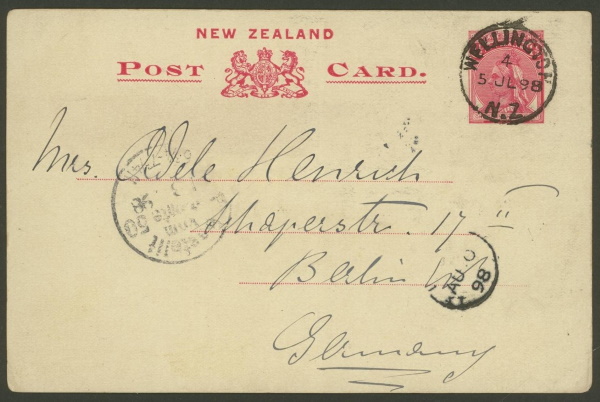 NEW ZEALAND
POST CARD.
WELLINGTON
4
5 JL 98
N.Z
Mrs. Adele Henrich
Schaperstr. 17 II
Berlin W
Germany
AU
98